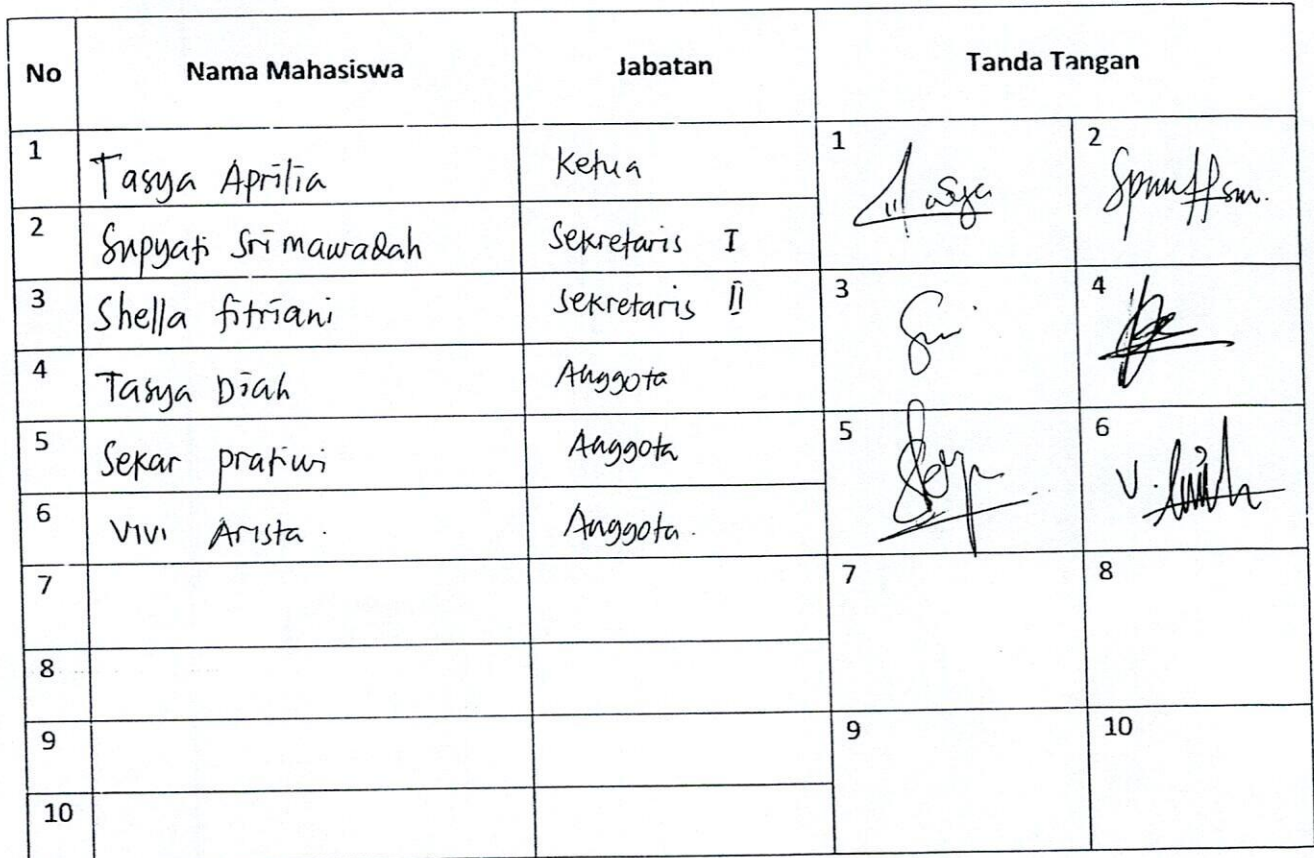 No Nama Mahasiswa Jabatan Tanda Tangan
1 Tasya Aprilia Ketua 1 Tasya 2
2 Supyati Sri mawadah Sekretaris I
3 Shella fitriani Sekretaris II 3 4
4 Tasya Diah Anggota
5 Sekar pratiwi Anggota 5 6
6 Vivi Arista. Anggota.
7 7 8
8
9 9 10
10